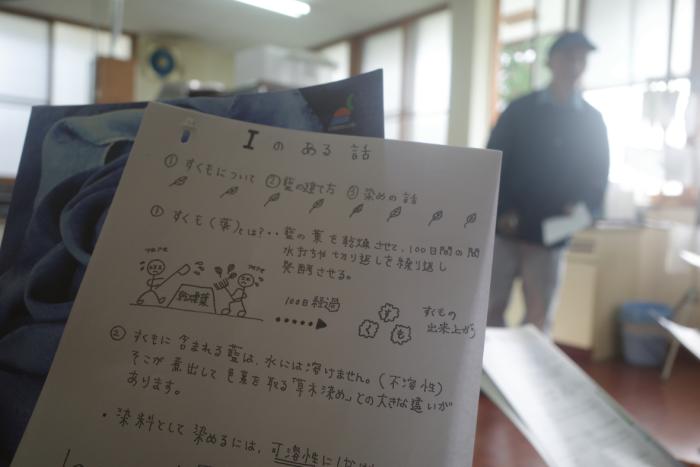 I のある話
① すくもについて ② 藍の建て方 ③ 染めの話
① すくも(蒅)とは?・・藍の葉を乾燥させて、100日間の間
水打ちや切り返しを繰り返し
発酵させる。
乾燥葉
100日経過
す
く も
すくもの
出来上がり
② すくもに含まれる藍は、水には溶けません。(不溶性)
そこが煮出して色素を取る「草木染め」との大きな違いが
あります。
・染料として染めるには、可溶性に